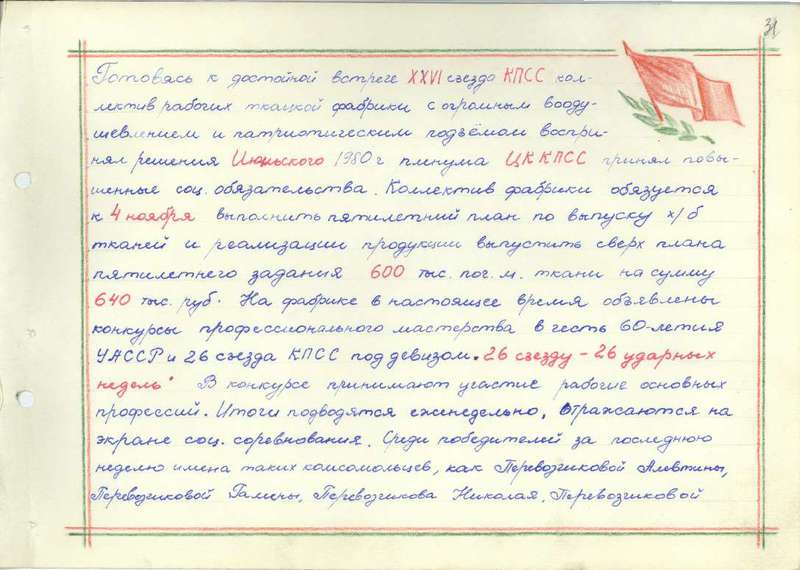 31
Готовясь к достойной встрече XXVI съезда КПСС кол-
лектив рабочих ткацкой фабрики с огромным вооду-
шевлением и патриотическим подъёмом воспри-
нял решения Июньского 1980 г пленума ЦК КПСС принял повы-
шенные соц. обязательства. Коллектив фабрики обязуется
к 4 ноября выполнить пятилетний план по выпуску х/б
тканей и реализации продукции выпустить сверх плана
пятилетнего задания 600 тыс. пог. м. ткани на сумму
640 тыс. руб. На фабрике в настоящее время объявлены
конкурсы профессионального мастерства в честь 60-летия
УАССР и 26 съезда КПСС под девизом „26 съезду - 26 ударных
недель" В конкурсе принимают участие рабочие основных
профессий. Итоги подводятся еженедельно, отражаются на
экране соц. соревнования. Среди победителей за последнюю
неделю имена таких комсомольцев, как Перевозчиковой Алевтины,
Перевозчиковой Галины, Перевозчикова Николая, Перевозчиковой